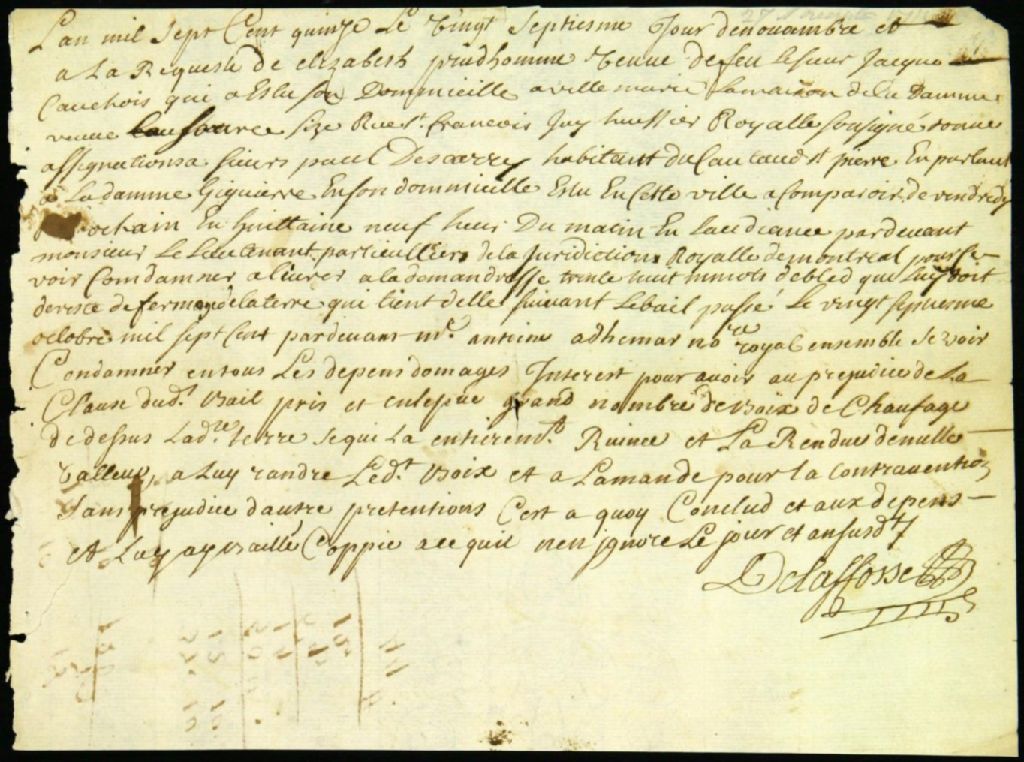 Lan mil Sept Cent quinze Le vingt Septiesme Jour denouambre et
a La Requeste de elizabesh prudhomme veuue defeu lesieur Jacque
Cauchois qui a Eslu son Dommicille a ville marie La maison de La Damme
veuue size Rue st. francois Jay huissier Royalle sousigné donné
assignationsa sieurs paul Descarry habitant du st pierre En parlant
a La damme Giguierre En son dommicille Eslu En Cette ville a Comparoir de vendredy
prochain En huittaine neuf heur Du matin En Laudiance pardeuant
monsieur Le Lieutenant particulliers de La Juridiction Royalle demontreal pour se
voir Condamner a liurer a la demandresse trente huit minots debled que Luy doit
dereste defermage delaterre qui tient delle suiuant Lebail passé Le vingt septiesme
octobre mil sept Cent pardeuant me. antoine adhemar nore royal ensemble se voir
Condamner en tous Les depens domages Interest pour auoir au prejudice de La
Clause dudt. Bail pris et enleuué grand nombre de Boix de Chaufage
de dessus Ladte. terre se qui La entierement. Ruinée et La Rendue denulle
valleur, a Luy randre Ledt. Boix et a Lamande pour la Contrauention
sans prejudice dautre pretentions Cest a quoy Conclud et aux depens
et Luy ay Baillé Coppie a ce quil nen jgnore Le jour et an susdt
Delaffosse